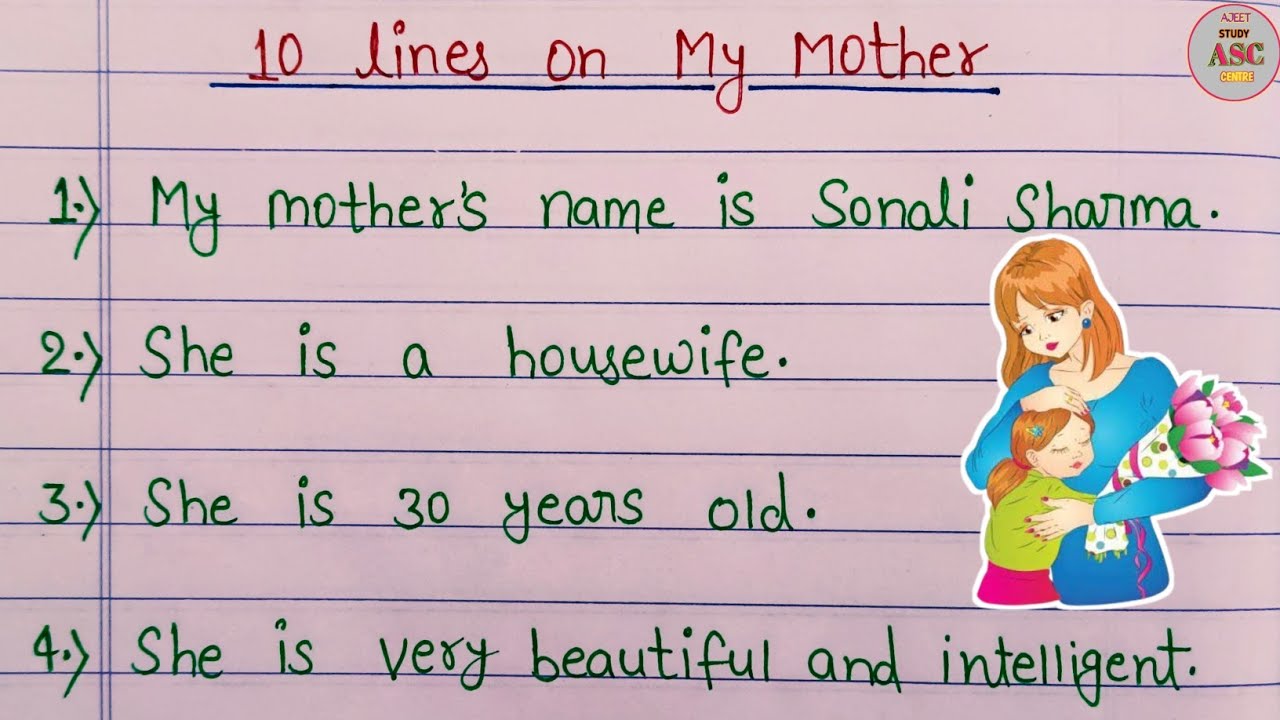 10 lines on My Mother
AJEET
STUDY
ASC
CENTRE
1.) My mother's name is Sonali Sharma.
2.) She is a housewife.
3.) She is 30 years old.
4.) She is very beautiful and intelligent.